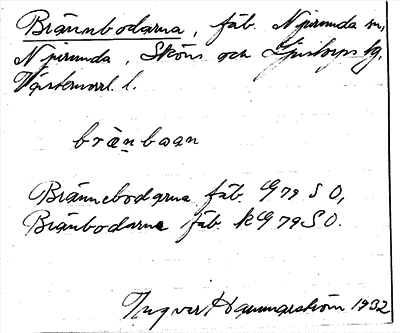 Brännbodarna, fäb. Njurunda sn,
Njurunda, Sköns och Ljustorps tg,
Västernorrl. l.
bränbaan
Brännebodarna fäb. G 79 S O,
Bränbodarna fäb. kG 79 S O.
Ingvar Hammarström 1932